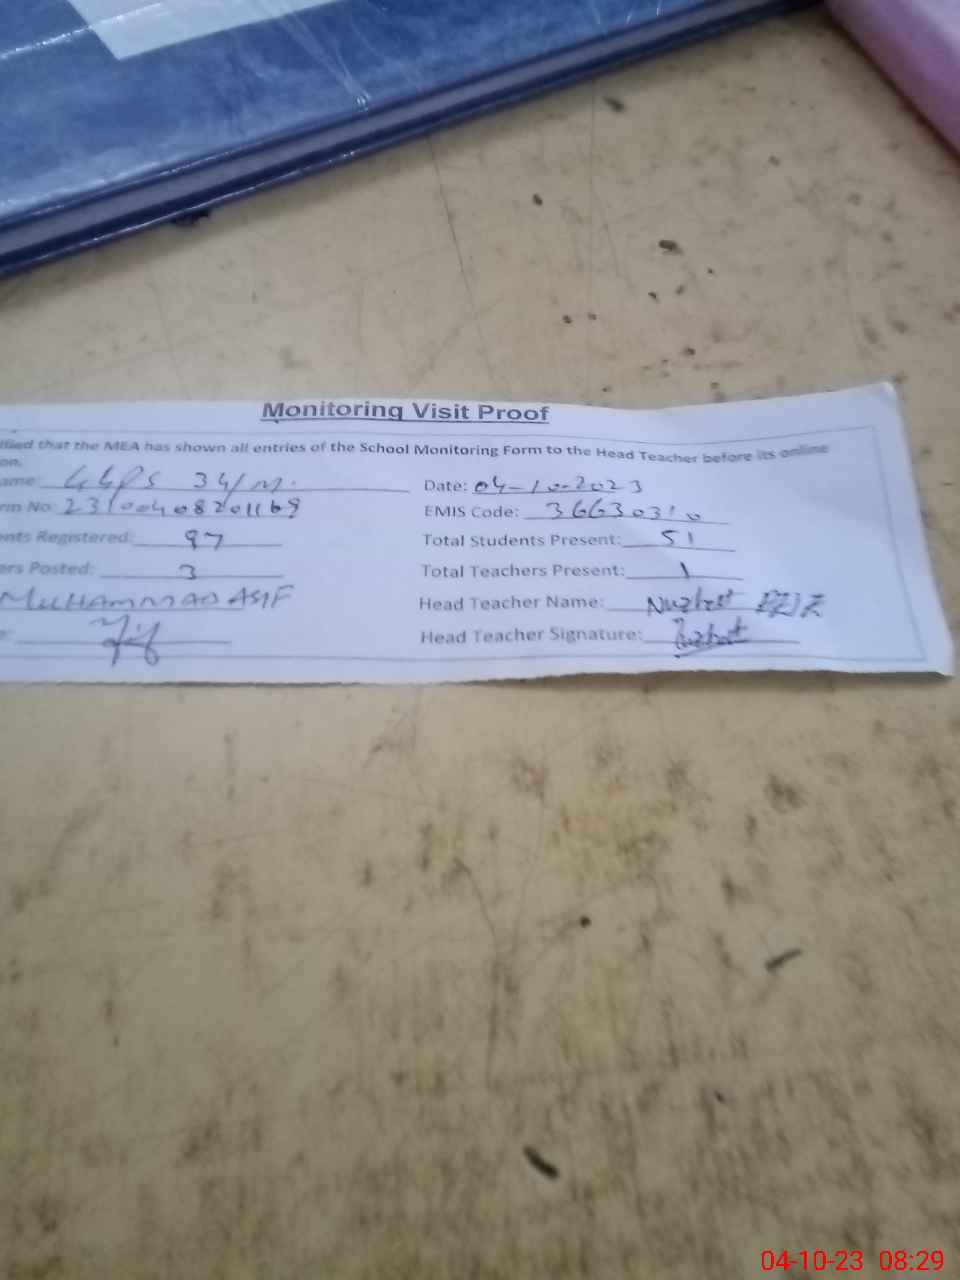 Monitoring Visit Proof
ified that the MEA has shown all entries of the School Monitoring Form to the Head Teacher before its online
on.
ame: GGPS 34/M. Date: 04-10-2023
rm No: 23100408201169 EMIS Code: 36630310
ents Registered: 97 Total Students Present: 51
ers Posted: 3 Total Teachers Present: 1
MUHAMMAD ASIF Head Teacher Name: Nuzhat
e: Head Teacher Signature: Nuzhat
04-10-23 08:29